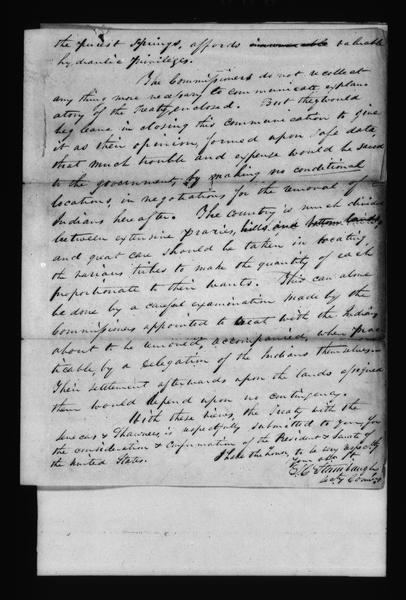 the purest springs, affords innumerable valuable
hydraulic privileges.
The Commissioners do not recollect
any thing more necessary to communicate, explan-
atory of the Treaty enclosed. But they would
beg leave, in closing this communication to give
it as their opinion, formed upon safe data,
that much trouble and expense would be saved
to the government, by making no conditional
locations, in negotiations for the removal of
Indians hereafter. The country is much divided
between extensive praries, hills, and bottom lands,
and great care should be taken in locating
the various tribes to make the quantity of each
proportionate to their wants. This can alone
be done by a careful examination made by the
Commissioners appointed to treat with the Indians
about to be removed, accompanied, when prac-
ticable, by a delegation of the Indians themselves.
Their settlement afterwards upon the lands assigned
them would depend upon no contingency.
With these views, the Treaty with the
Senecas & Shawnees is respectfully submitted to you, for
the consideration & confirmation of the President & Senate of
the United States.
I have the honor, to be very respectfully
Your obt. St.
S. C. Stambaugh
Secy Comrs